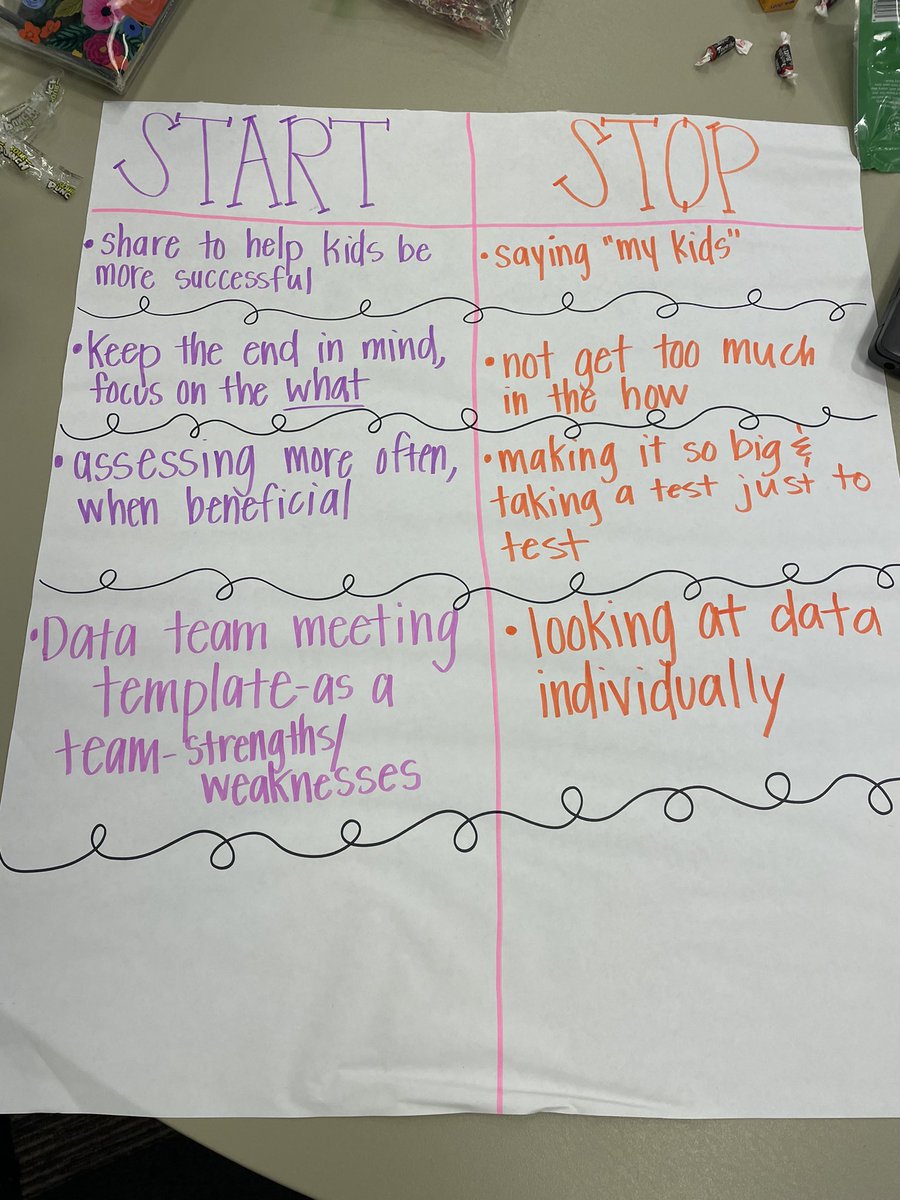 START
STOP
• share to help kids be
more successful
• saying "my kids"
• Keep the end in mind,
focus on the what
• not get too much
in the how
• assessing more often,
when beneficial
• making it so big &
taking a test just to
test
• Data team meeting
template-as a
team-strengths/
weaknesses
• looking at data
individually